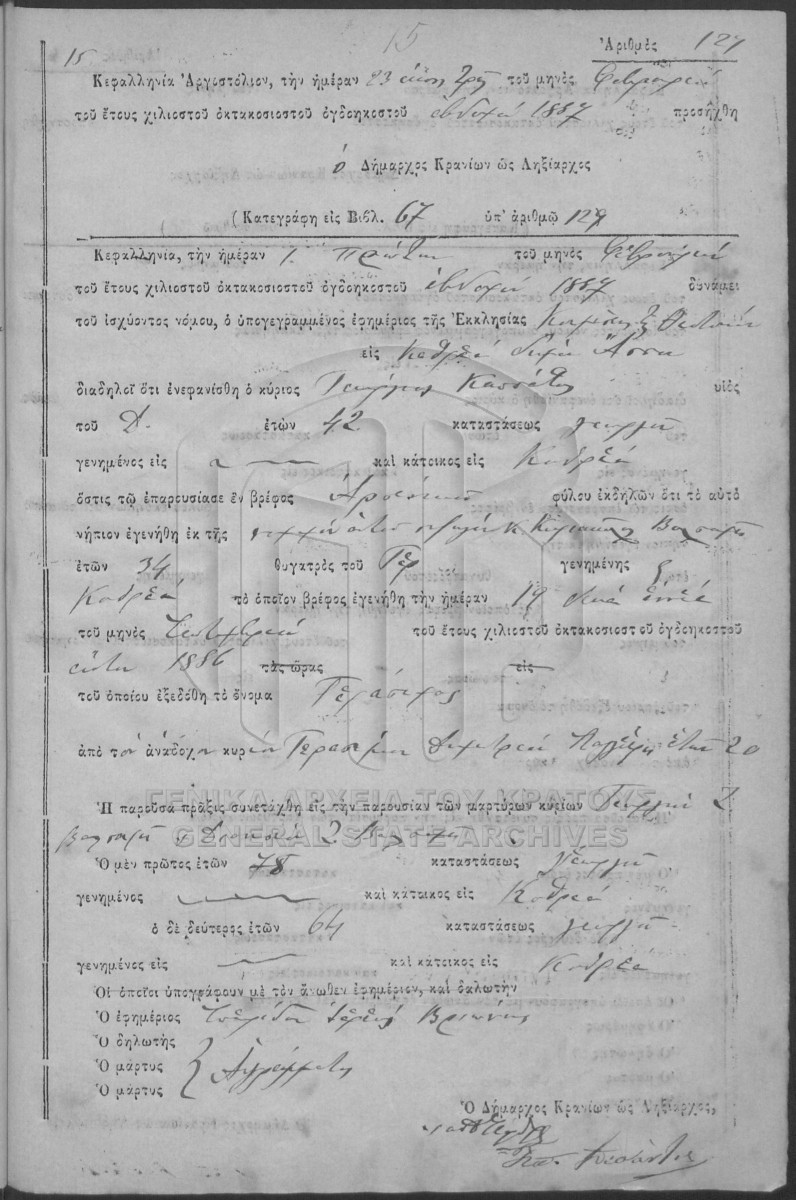 15
15
Ἀριθμὸς 127
Κεφαλληνία Ἀργοστόλιον, τὴν ἡμέραν 23 εἴκοσι τρεῖς τοῦ μηνὸς Φεβρουαρίου
τοῦ ἔτους χιλιοστοῦ ὀκτακοσιοστοῦ ὀγδοηκοστοῦ ἑβδόμου 1887 προσήχθη
ὁ Δήμαρχος Κρανίων ὡς Ληξίαρχος
(Κατεγράφη εἰς Βιβλ. 67 ὑπ' ἀριθμῷ 127
Κεφαλληνία, τὴν ἡμέραν 1. πρώτην τοῦ μηνὸς Φεβρουαρίου
τοῦ ἔτους χιλιοστοῦ ὀκτακοσιοστοῦ ὀγδοηκοστοῦ ἑβδόμου 1887 δυνάμει
τοῦ ἰσχύοντος νόμου, ὁ ὑπογεγραμμένος ἐφημέριος τῆς Ἐκκλησίας
εἰς Κοθρέα
διαδηλοῖ ὅτι ἐνεφανίσθη ὁ κύριος Γεώργιος υἱὸς
τοῦ Δ. ἐτῶν 42 καταστάσεως γεωργοῦ
γενημένος εἰς καὶ κάτοικος εἰς Κοθρέα
ὅστις τῷ ἐπαρουσίασε ἓν βρέφος Ἀρσενικοῦ φύλου ἐκδηλῶν ὅτι τὸ αὐτὸ
νήπιον ἐγενήθη ἐκ τῆς νομίμου αὐτοῦ συζύγου Κ. Κυριακῆς
ἐτῶν 34 θυγατρὸς τοῦ Γερ γενημένης
Κοθρέα τὸ ὁποῖον βρέφος ἐγενήθη τὴν ἡμέραν 19 δεκα ἐννέα
τοῦ μηνὸς Σεπτεμβρίου τοῦ ἔτους χιλιοστοῦ ὀκτακοσιοστοῦ ὀγδοηκοστοῦ
ἕκτου 1886 τὰς ὥρας εἰς
τοῦ ὁποίου ἐξεδόθη τὸ ὄνομα Γεράσιμος
ἀπὸ τὸν ἀνάδοχον κυρίον Γερασίμου Δημητρίου ἐτῶν 20
ΓΕΝΙΚΑ ΑΡΧΕΙΑ ΤΟΥ ΚΡΑΤΟΥΣ
Ἡ παροῦσα πρᾶξις συνετάχθη εἰς τὴν παρουσίαν τῶν μαρτύρων κυρίων Γεωργίου
GENERAL STATE ARCHIVES
Ὁ μὲν πρῶτος ἐτῶν 78 καταστάσεως γεωργοῦ
γενημένος καὶ κάτοικος εἰς Κοθρέα
ὁ δὲ δεύτερος ἐτῶν 64 καταστάσεως γεωργοῦ
γενημένος εἰς καὶ κάτοικος εἰς Κοθρέα
Οἱ ὁποῖοι ὑπογράφουν μὲ τὸν ἄνωθεν ἐφημέριον, καὶ δηλωτὴν
Ὁ ἐφημέριος Σπυρίδων Ἱερεὺς
Ὁ δηλωτὴς
Ὁ μάρτυς Ἀγράμματοι
Ὁ μάρτυς
Ὁ Δήμαρχος Κρανίων ὡς Ληξίαρχος,